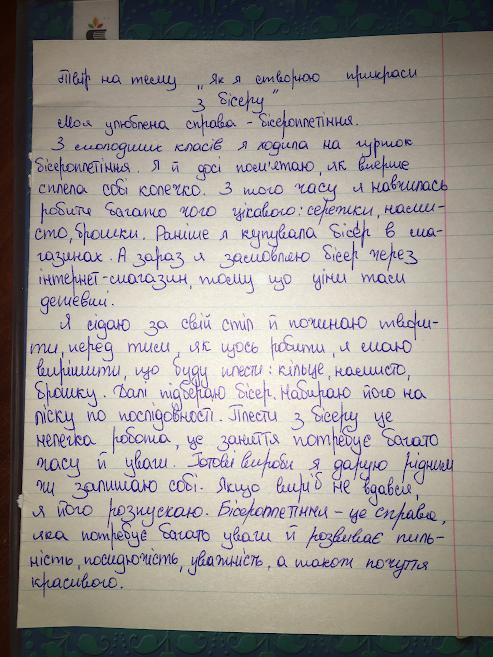 Твір на тему „Як я створюю прикраси
з бісеру"
Моя улюблена справа – бісероплетіння.
З молодших класів я ходила на гурток
бісероплетіння. Я й досі пам'ятаю, як вперше
сплела собі колечко. З того часу я навчилась
робити багато чого цікавого: сережки, нами-
сто, брошки. Раніше я купувала бісер в ма-
газинах. А зараз я замовляю бісер через
інтернет-магазин, тому що ціни там
дешевші.
Я сідаю за свій стіл й починаю твори-
ти, перед тим, як щось робити, я маю
вирішити, що буду плести: кільце, намисто,
брошку. Далі підбераю бісер. Набираю його на
ліску по послідовності. Плести з бісеру це
нелегка робота, це заняття потребує багато
часу й уваги. Готові вироби я дарую рідним
чи залишаю собі. Якщо виріб не вдався,
я його розпускаю. Бісероплетіння – це справа,
яка потребує багато уваги й розвиває пиль-
ність, посидючість, уважність, а також почуття
красивого.